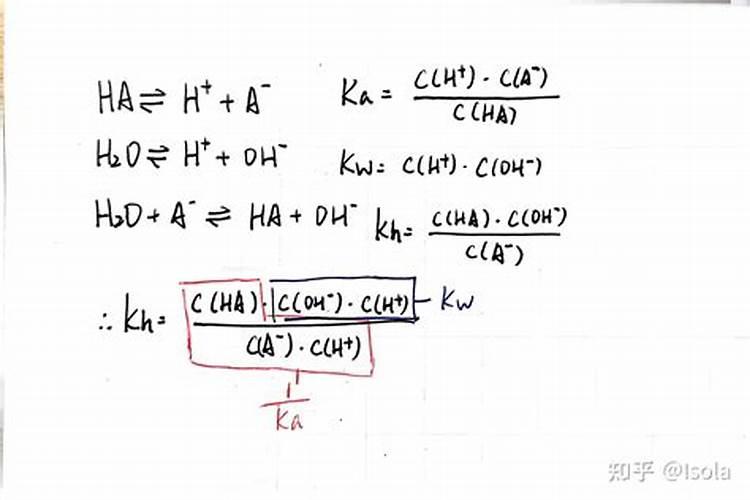 HA⇌ H⁺ + A⁻ Ka = C(H⁺)·C(A⁻) / C(HA)
H₂O⇌ H⁺ + OH⁻ Kw= C(H⁺)·C(OH⁻)
H₂O + A⁻ ⇌ HA + OH⁻ Kh= C(HA)·C(OH⁻) / C(A⁻)
∴ Kh= C(HA)·C(OH⁻)·C(H⁺) / C(A⁻)·C(H⁺) Kw
1/Ka
知乎 @Isola